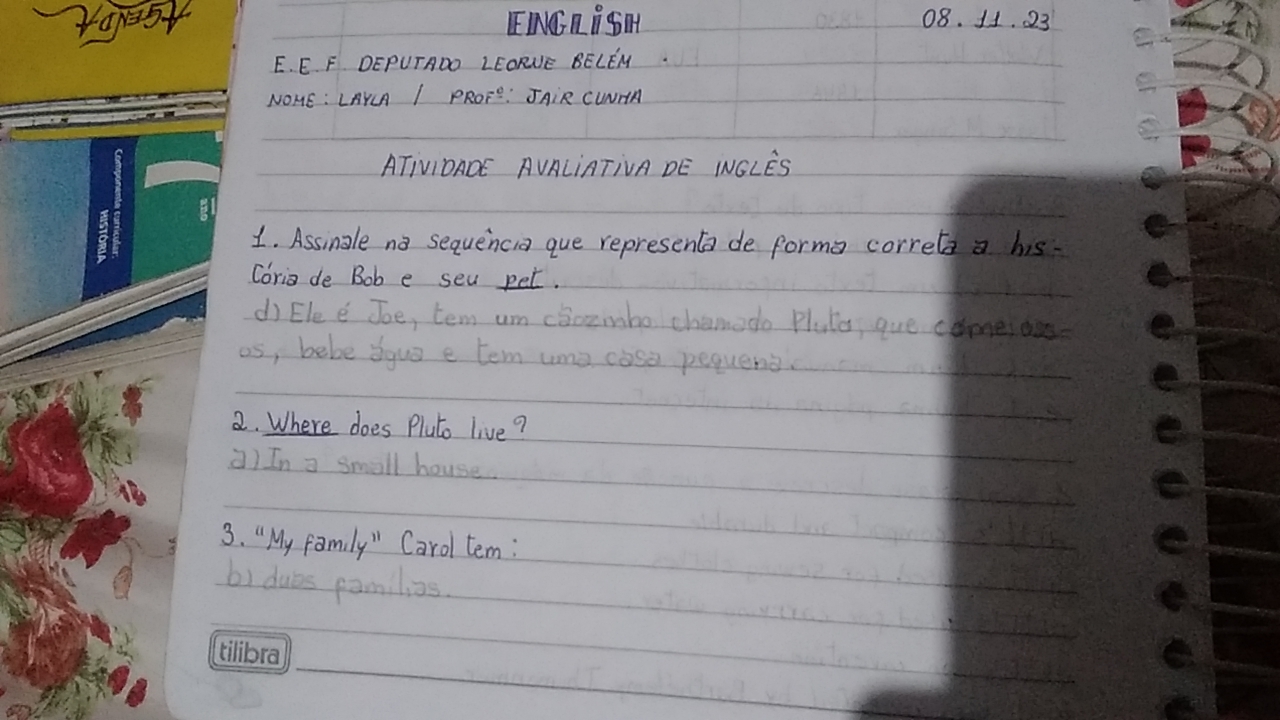 AGENDA
Componente curricular:
HISTÓRIA
ENGLISH 08.11.23
E.E.F. DEPUTADO LEORNE BELÉM
NOME: LAYLA / PROFº: JAIR CUNHA
ATIVIDADE AVALIATIVA DE INGLÊS
1. Assinale na sequência que representa de forma correta a his-
tória de Bob e seu pet.
d) Ele é Joe, tem um cãozinho chamado Pluto, que come
os, bebe água e tem uma casa pequena.
2. Where does Pluto live?
a) In a small house.
3. "My family" Carol tem:
b) duas famílias.
tilibra